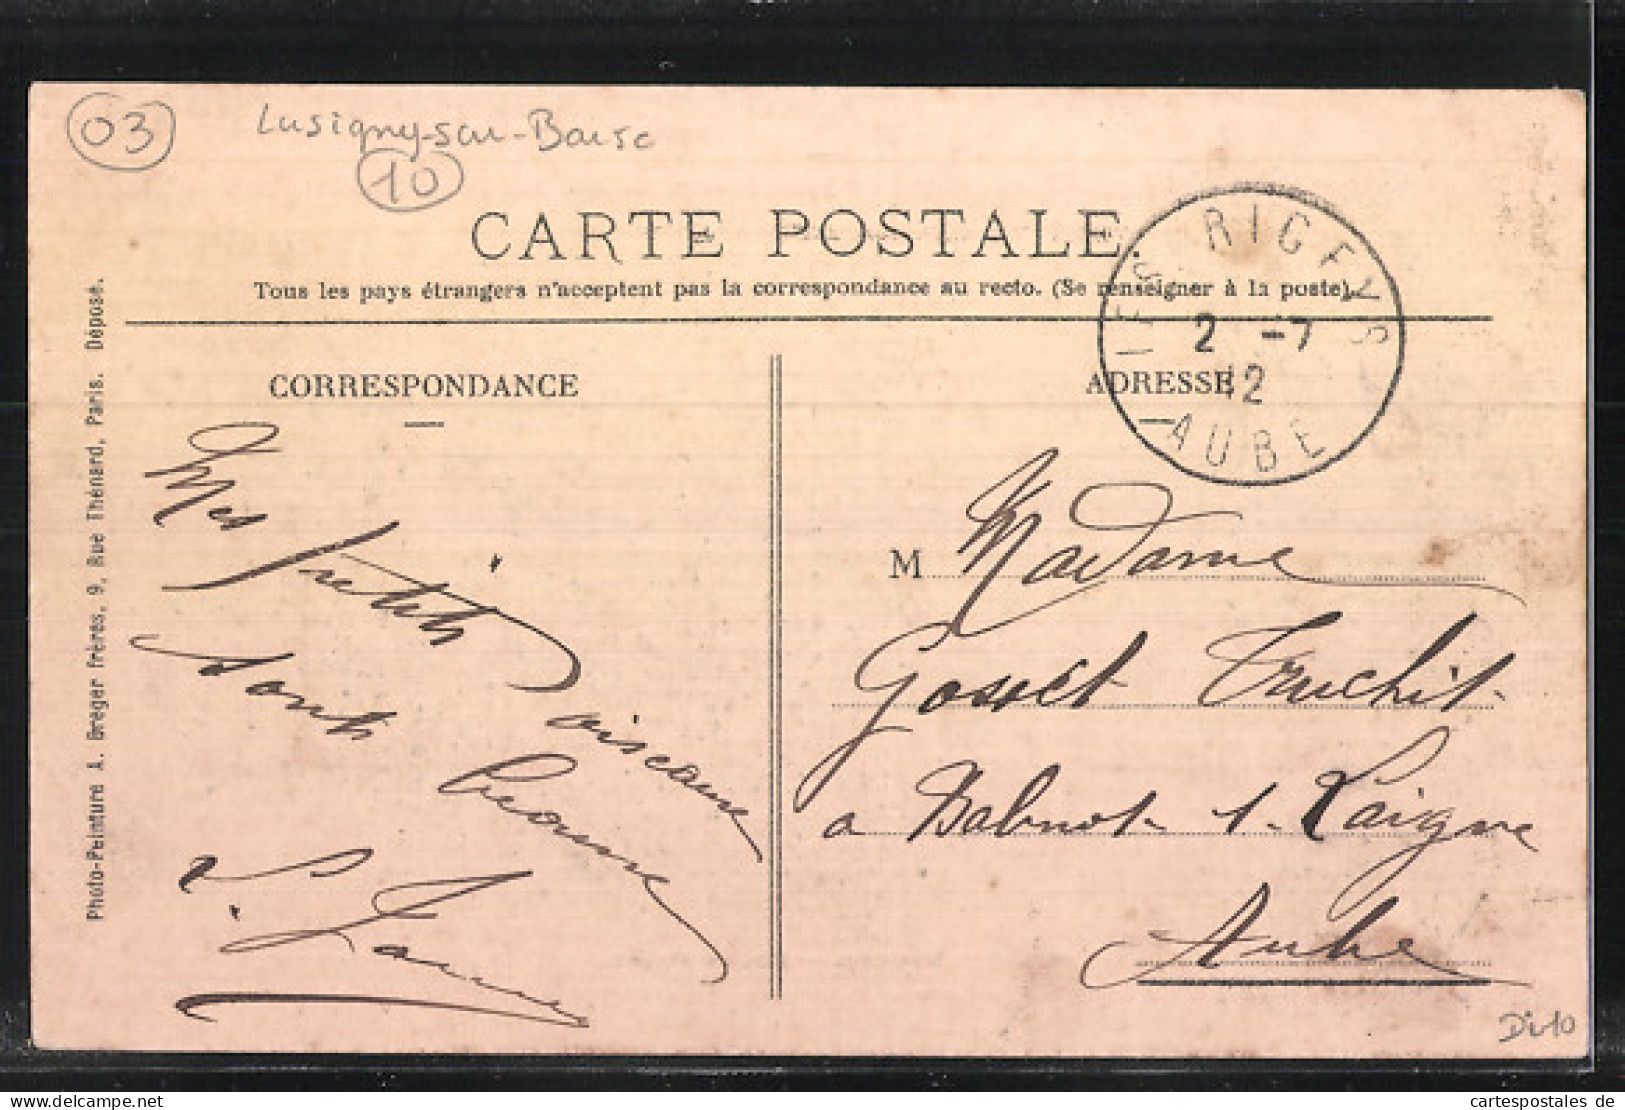 03
Lusigny-sur-Barse
10
CARTE POSTALE.
Tous les pays étrangers n'acceptent pas la correspondance au recto. (Se renseigner à la poste).
LES RICEYS
2 -7
12
AUBE
CORRESPONDANCE
ADRESSE
Mes petits oiseaux
sont beaux
L. Jeanne
M Madame
Gosset Truchit
a Balnot s. Laigne
Aube
Photo-Peinture A. Breger frères, 9, Rue Thénard, Paris. Déposé.
Div10
cartespostales de